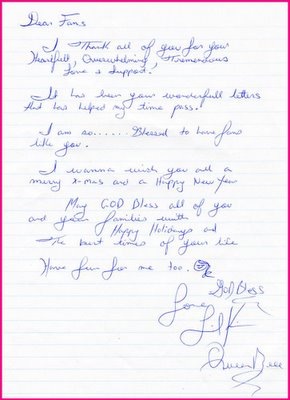 Dear Fans
I Thank all of you for your
Heartfelt, Overwhelming, Tremendous
Love & Support!
It has been your wonderfull letters
that has helped my time pass.
I am so...... Blessed to have fans
like you.
I wanna wish you all a
merry x-mas and a Happy New Year
May GOD Bless all of you
and your families with
Happy Holidays and
The best times of your life
Have fun for me too.
GOD Bless
Love
Lil K
Queen Bee